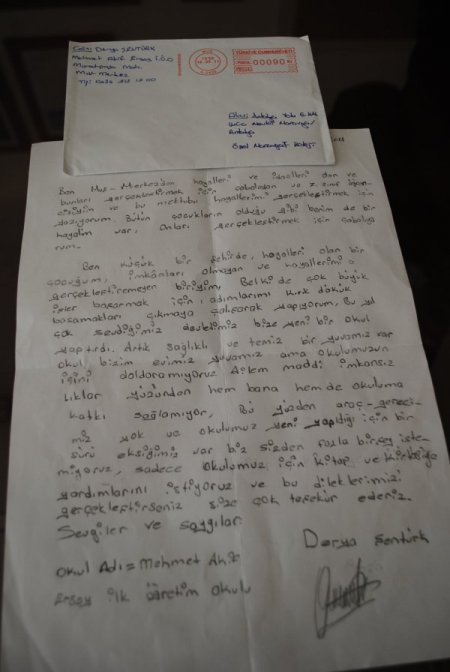 Derya ŞENTÜRK
Mehmet Akif Ersoy İ.Ö.O
Merkez
TÜRKİYE CUMHURİYETİ
00090
Antalya
Ben Muş-Merkezden hayalleri ve idealleri olan ve
bunları gerçekleştirmek için çabalayan 7. sınıf öğren-
cisiyim ve bu mektubu hayallerimi gerçekleştirmek için
yazıyorum. Bütün çocukların olduğu gibi benim de bir
hayalim var, onları gerçekleştirmek için çabalıyo
rum.
Ben küçük bir şehirde, hayalleri olan bir
çocuğum, imkânları olmayan ve hayallerimi
gerçekleştiremeyen biriyim, Belki de çok büyük
işler başarmak için, adımlarımı kırık dökük
basamakları çıkmaya çalışarak yapıyorum, Bu yıl
çok sevdiğimiz devletimiz bize yeni bir okul
yaptırdı. Artık sağlıklı ve temiz bir yuvamız var
okul bizim evimiz yuvamız ama okulumuzun
içini dolduramıyoruz Ailem maddi imkansız
lıklar yüzünden hem bana hem de okuluma
katkı sağlamıyor, Bu yüzden araç-gereci-
miz yok ve okulumuz yeni yapıldığı için bir
sürü eksiğimiz var biz sizden fazla birşey iste-
miyoruz, sadece okulumuz için kitap ve kırtasiye
yardımlarını istiyoruz ve bu dileklerimizi
gerçekleştirseniz size çok teşekür ederiz.
Sevgiler ve saygılar
Derya Şentürk
Okul Adı = Mehmet Akif
Ersoy ilk öğretim okulu